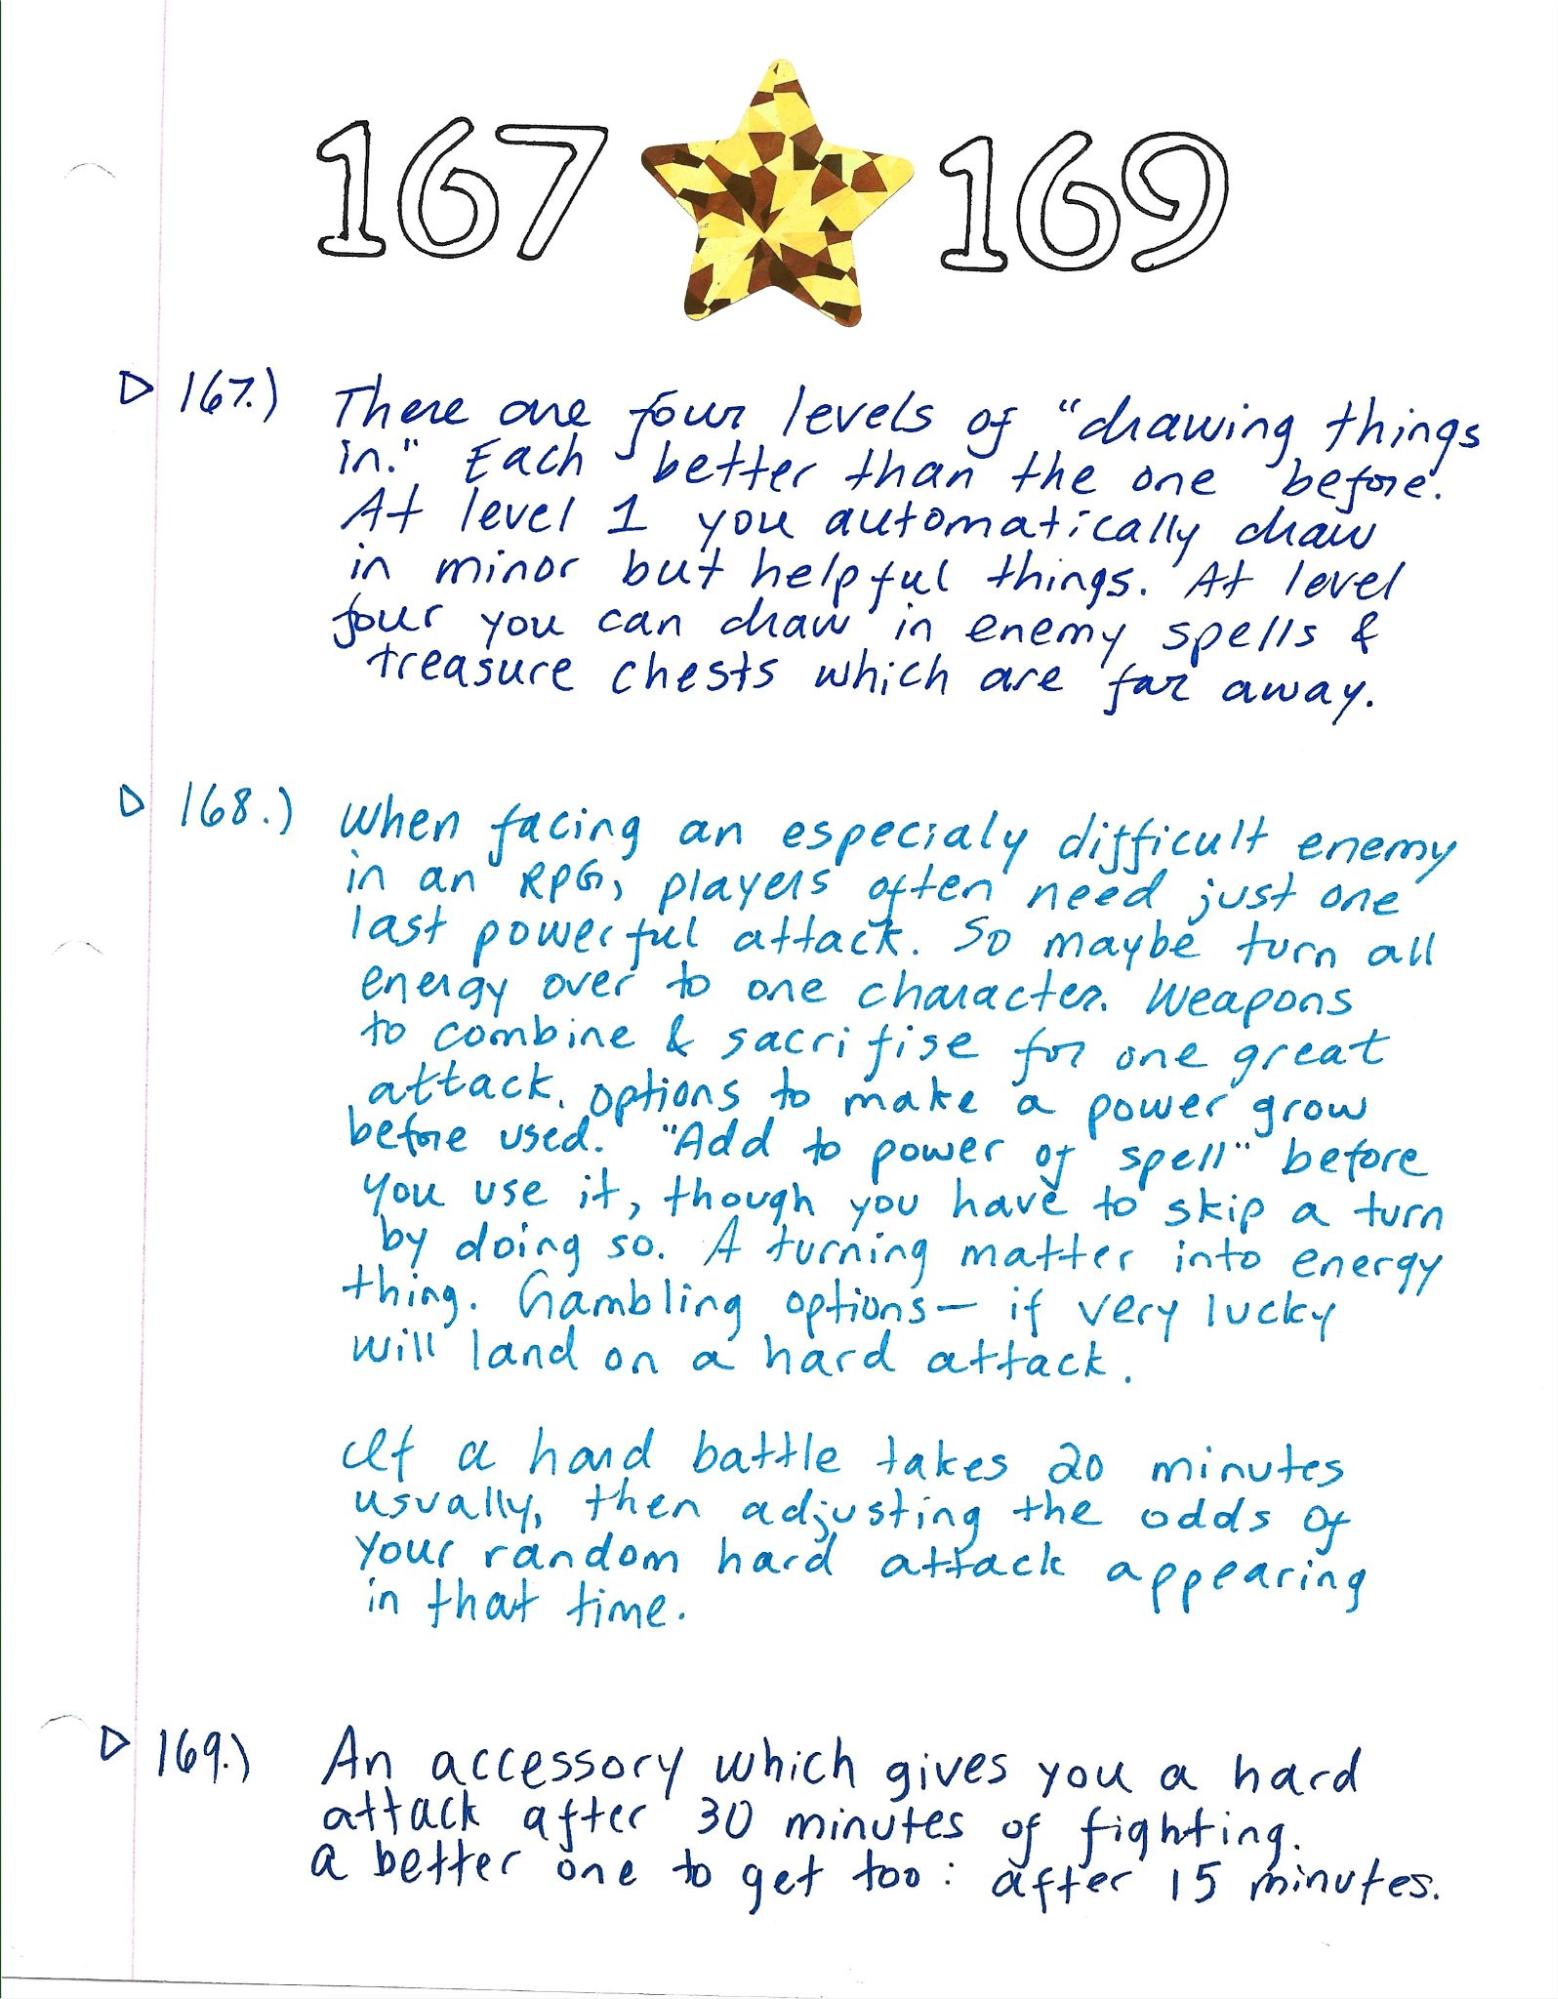 167 169
▷ 167.) There are four levels of "drawing things
in." Each better than the one before.
At level 1 you automatically draw
in minor but helpful things. At level
four you can draw in enemy spells &
treasure chests which are far away.
▷ 168.) When facing an especialy difficult enemy
in an RPG, players often need just one
last powerful attack. So maybe turn all
energy over to one character. Weapons
to combine & sacrifise for one great
attack. Options to make a power grow
before used. "Add to power of spell" before
you use it, though you have to skip a turn
by doing so. A turning matter into energy
thing. Gambling options— if very lucky
will land on a hard attack.
If a hard battle takes 20 minutes
usually, then adjusting the odds of
your random hard attack appearing
in that time.
▷ 169.) An accessory which gives you a hard
attack after 30 minutes of fighting.
a better one to get too: after 15 minutes.